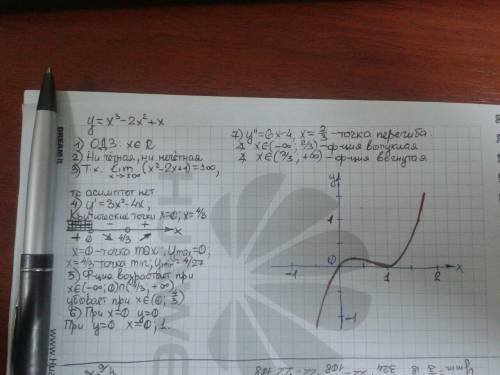 y = x³-2x²+x
1) ОДЗ: x∈R
2) Ни чётная, ни нечётная
3) Т.к. lim (x²-2x+1)=±∞,
x→±∞
то асимптот нет
4) y'=3x²-4x;
Критические точки x=0; x=4/3
+ - +
0 4/3 x
x=0-точка max, ymax=0;
x=4/3-точка min, ymin=4/27
5) Ф-ция возрастает при
x∈(-∞; 0)∩(4/3; +∞)
убывает при x∈(0; 4/3)
6) При x=0 y=0
При y=0 x=0; 1.
7) y''=6x-4; x=2/3-точка перегиба.
x∈(-∞; 2/3)-ф-ция выпуклая
x∈(2/3; +∞)-ф-ция вогнутая
y
1
-1 0 1 2 x
-1
DREAM it